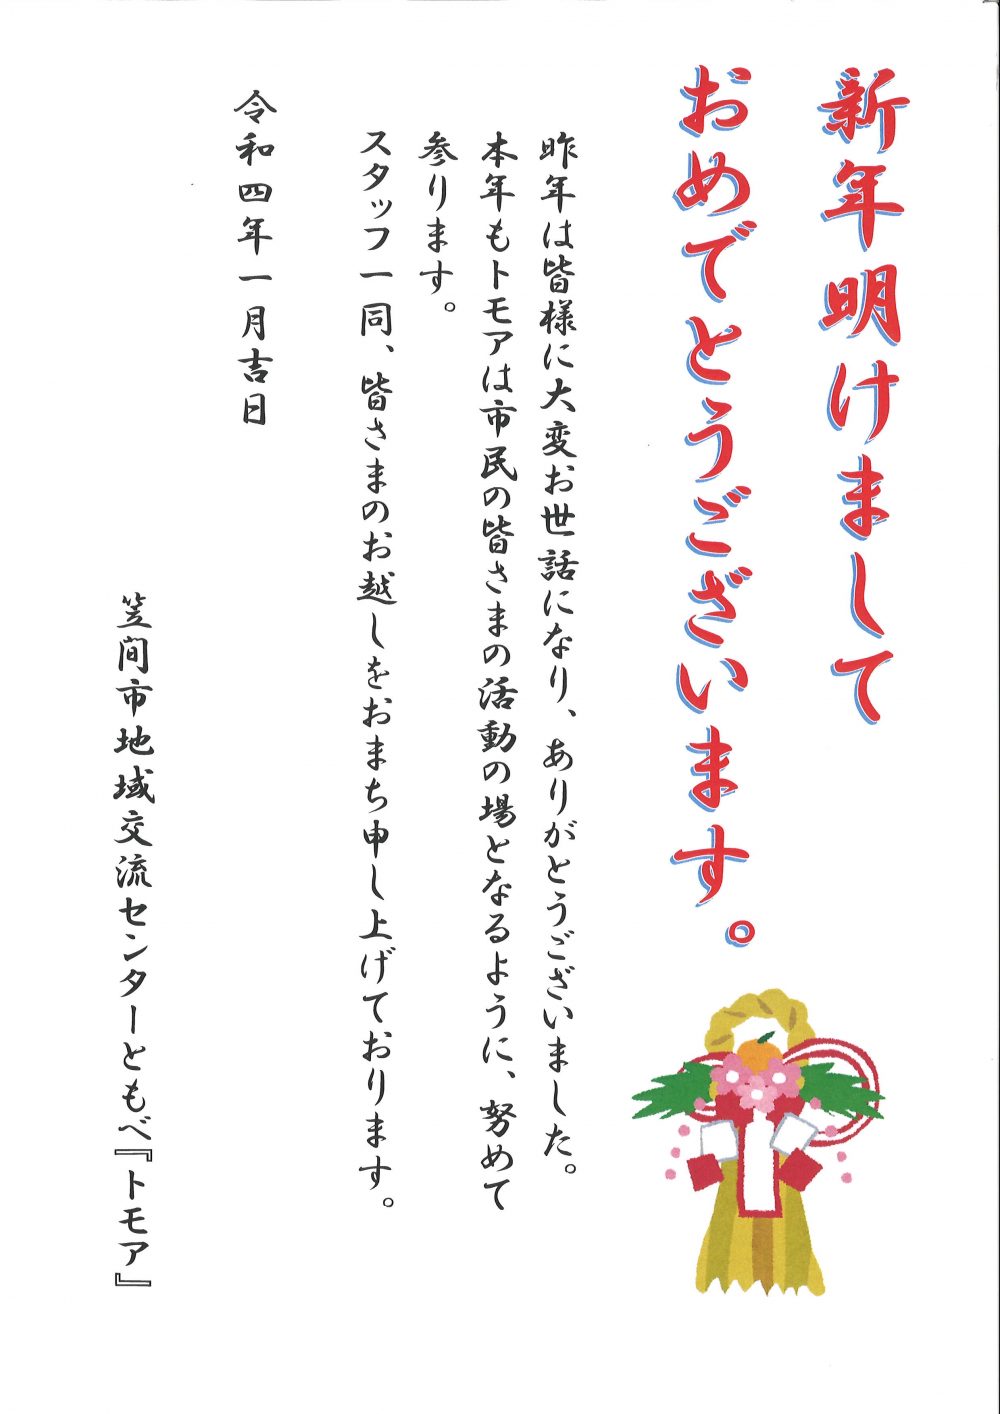 新年明けまして
おめでとうございます。
昨年は皆様に大変お世話になり、ありがとうございました。
本年もトモアは市民の皆さまの活動の場となるように、努めて
参ります。
スタッフ一同、皆さまのお越しをおまち申し上げております。
令和四年一月吉日
笠間市地域交流センターともべ『トモア』